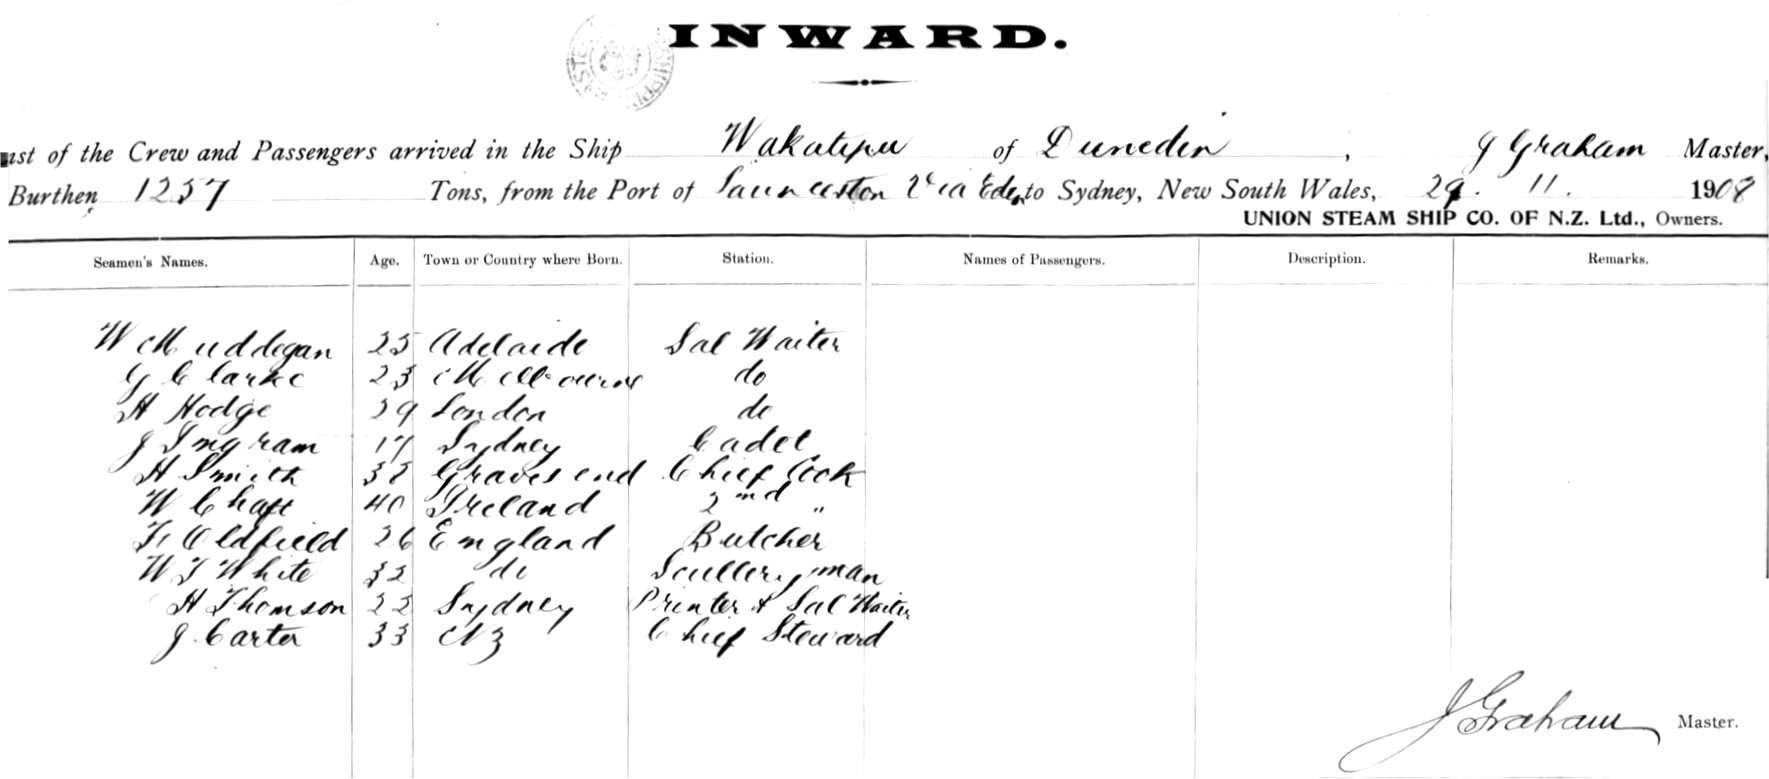 INWARD.
ist of the Crew and Passengers arrived in the Ship Wakatipu of Dunedin, J Graham Master,
Burthen 1257 Tons, from the Port of Launceston Via Eden to Sydney, New South Wales, 29. 11. 1908
UNION STEAM SHIP CO. OF N.Z. Ltd., Owners.
Seamen's Names. Age. Town or Country where Born. Station. Names of Passengers. Description. Remarks.
W Muddegan 25 Adelaide Sal Waiter
G Clarke 23 Melbourne do
H Hodge 39 London do
J Ingram 17 Sydney Cadet
H Smith 38 Graves end Chief Cook
W 40 Ireland 2nd "
F Oldfield 26 England Butcher
W J White 32 do Scullery man
H Thomson 22 Sydney Printer & Sal Waiter
J Carter 33 NZ Chief Steward
J Graham Master.